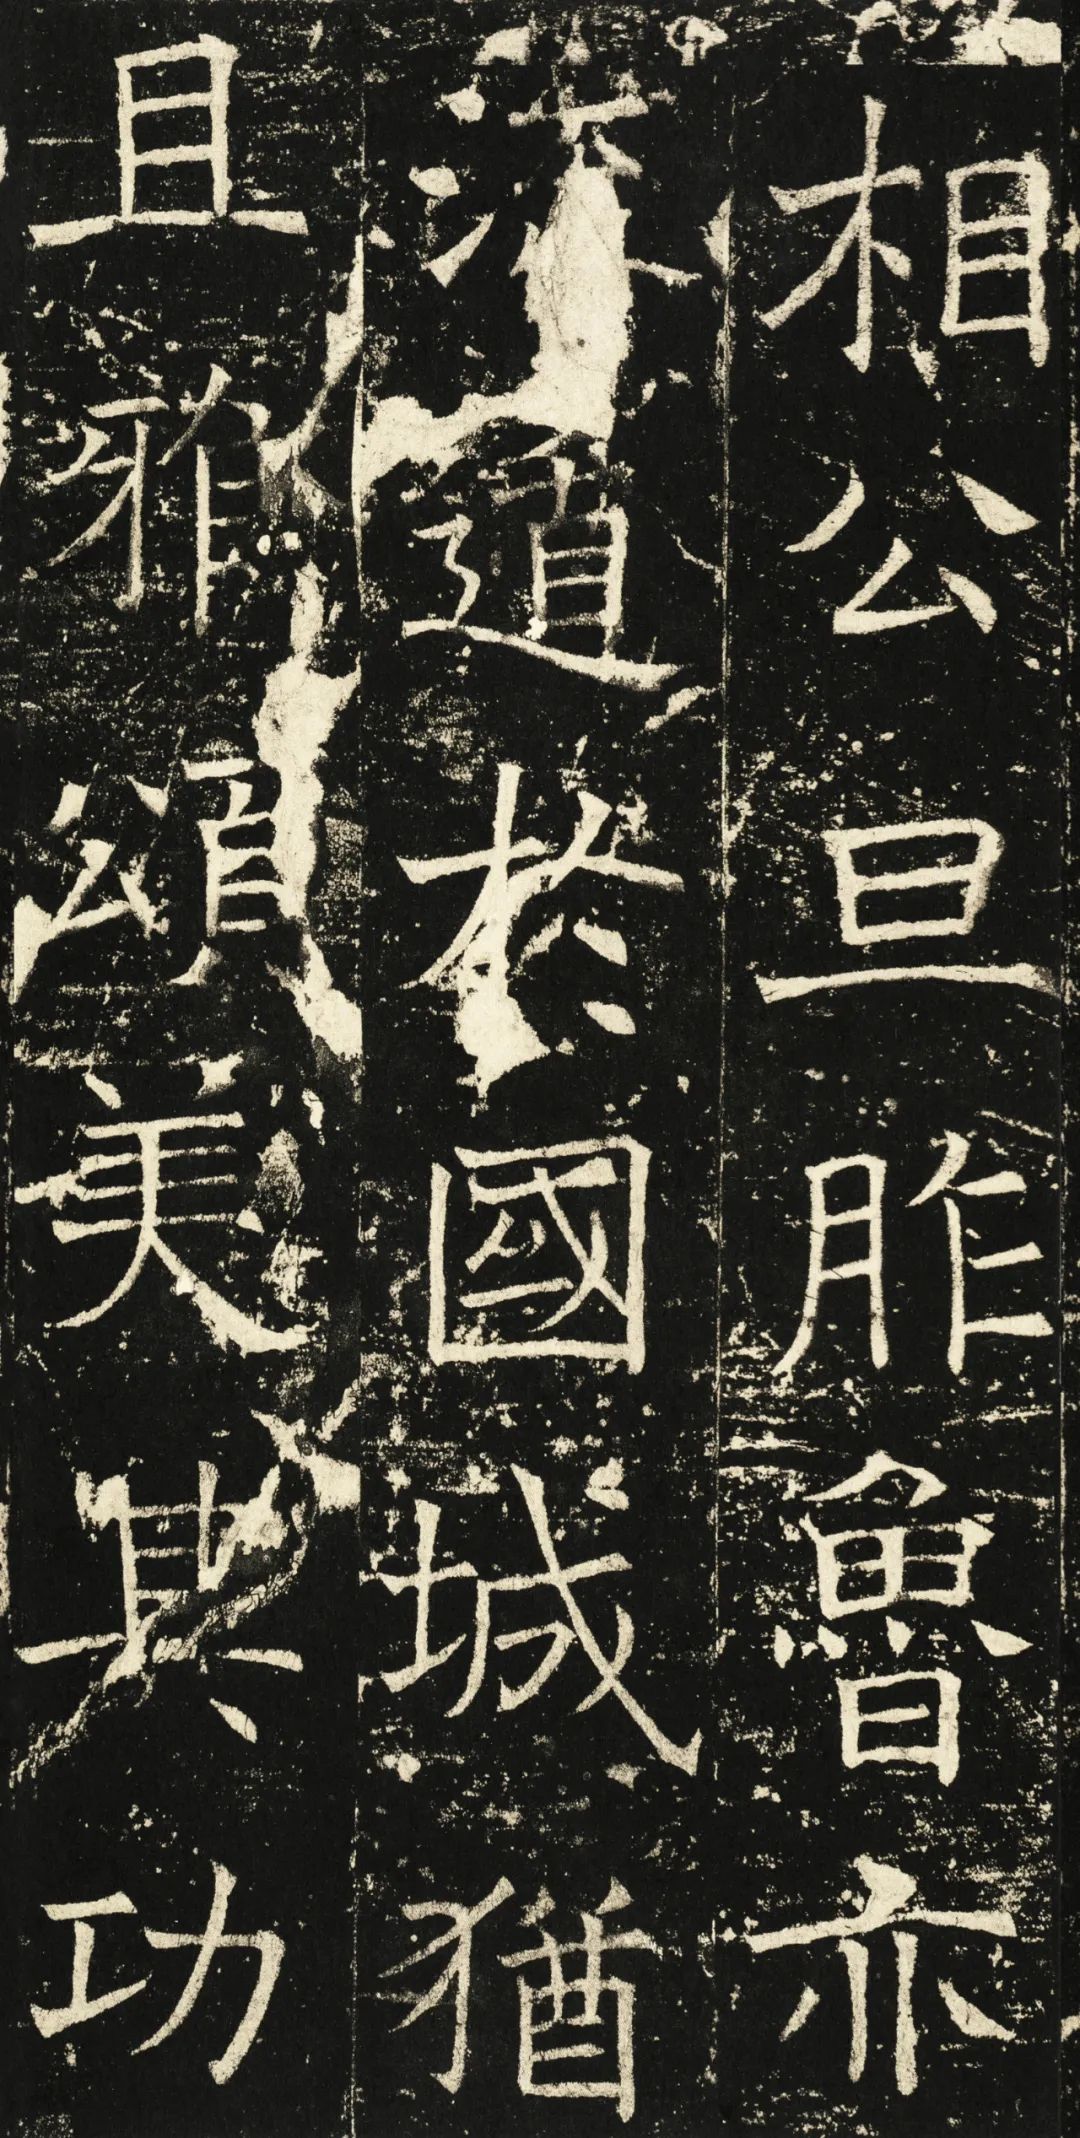 相公旦胙魯亦
道於國城猶
且雅頌美其功